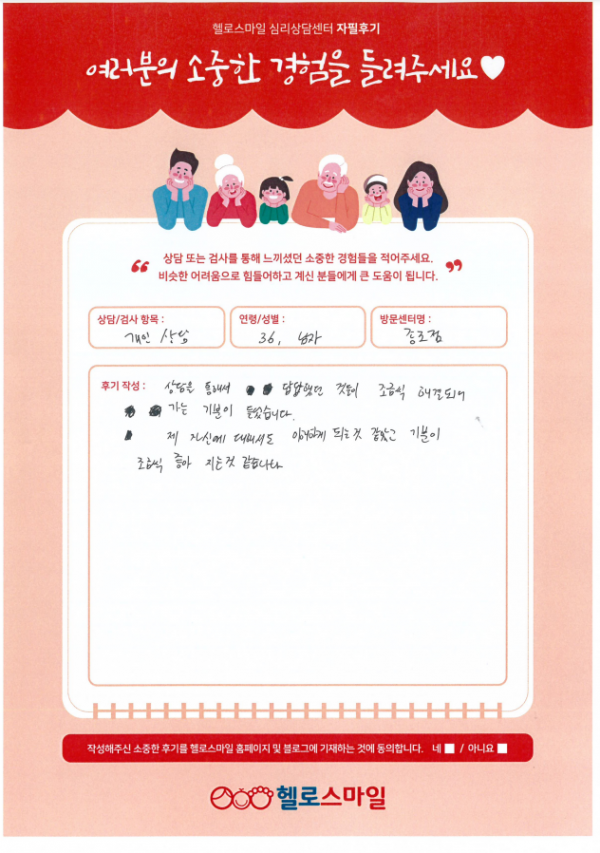 헬로스마일 심리상담센터 자필후기
여러분의 소중한 경험을 들려주세요
상담 또는 검사를 통해 느끼셨던 소중한 경험들을 적어주세요.
비슷한 어려움으로 힘들어하고 계신 분들에게 큰 도움이 됩니다.
상담/검사 항목 :
개인 상담
연령/성별 :
36, 남자
방문센터명 :
종로점
후기 작성 : 상담을 통해서 답답했던 것들이 조금씩 해결되어
가는 기분이 들었습니다.
제 자신에 대해서도 이해하게 되는것 같았고 기분이
조금씩 좋아 지는것 같습니다
작성해주신 소중한 후기를 헬로스마일 홈페이지 및 블로그에 기재하는 것에 동의합니다. 네 / 아니요
헬로스마일